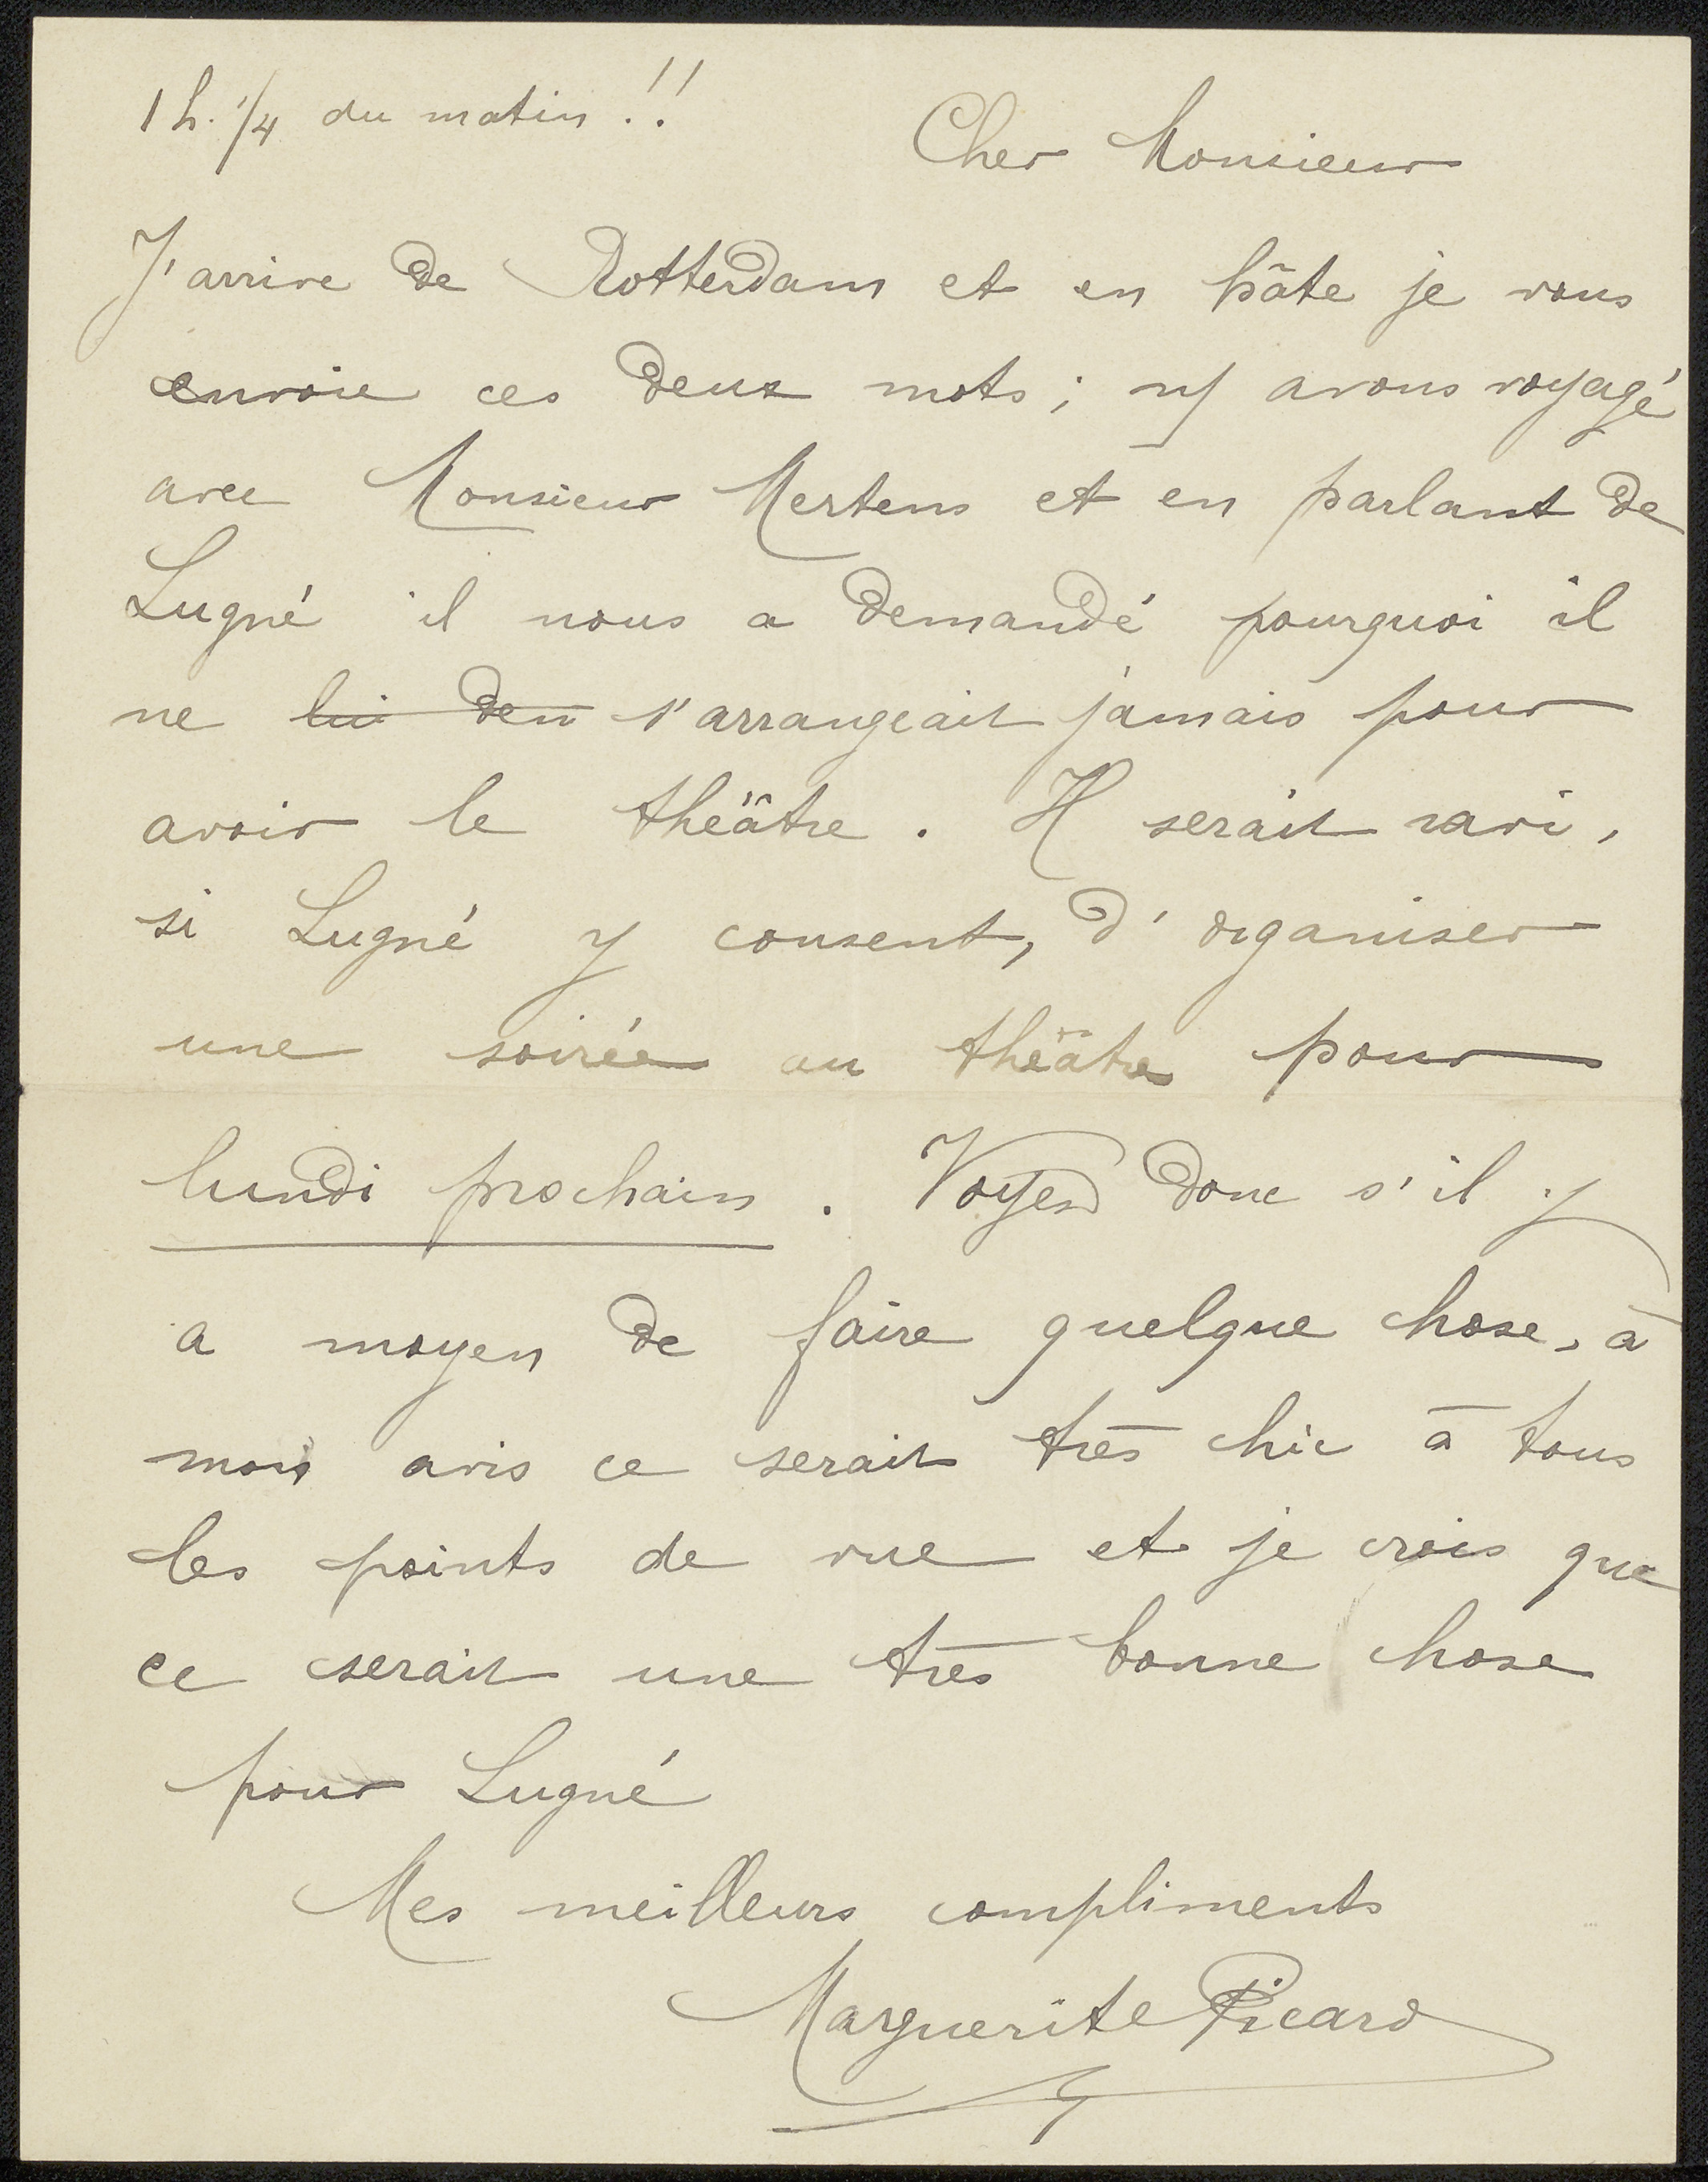 1 h. 1/4 du matin !!
Cher Monsieur
J'arrive de Rotterdam et en hâte je vous
envoie ces deux mots ; ns avons voyagé
avec Monsieur Mertens et en parlant de
Lugné il nous a demandé pourquoi il
ne lui dem s'arrangeait jamais pour
avoir le théâtre. Il serait ravi,
si Lugné y consent, d'organiser
une soirée au théâtre pour
lundi prochain. Voyez donc s'il y
a moyen de faire quelque chose, à
mon avis ce serait très chic à tous
les points de vue et je crois que
ce serait une très bonne chose
pour Lugné
Mes meilleurs compliments
Marguerite Picard